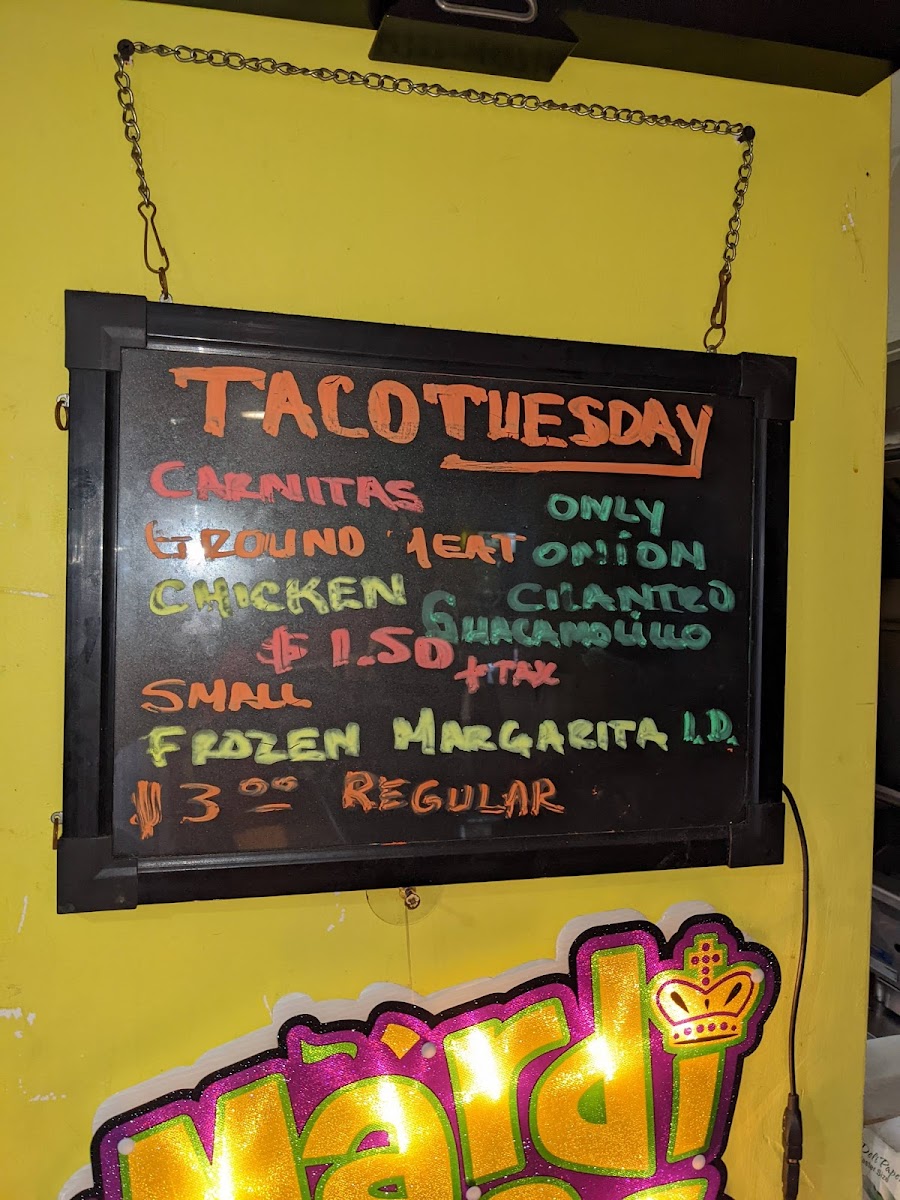 TACO TUESDAY
CARNITAS
GROUND MEAT
CHICKEN
ONLY
ONION
CILANTRO
GUACAMOLILLO
$1.50
+ TAX
SMALL
FROZEN MARGARITA I.D.
$3.00 REGULAR
Mardi